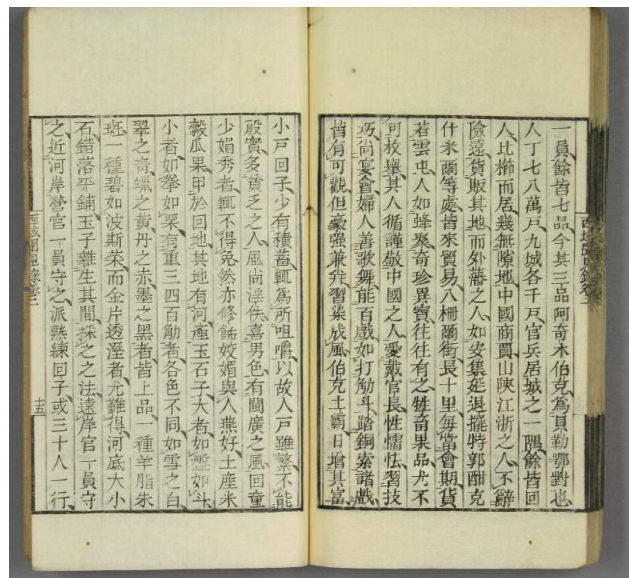 一員餘皆七品今其三品阿奇木伯克為貝勒鄂對也
人丁七八萬戸九城各千戸官兵居城之一隅餘皆回
人比櫛而居幾無隙地中國商賈山陝江浙之人不辭
險遠貨販其地而外藩之人如安集延退擺特郭酣克
什米爾等處皆來貿易八柵爾街長十里每當會期貨
若雲屯人如蜂聚奇珍異寶往往有之牲畜果品尤不
可枚舉其人循謹敬中國之人愛戴官長性懦怯習技
巧尚宴會婦人善歌舞能百戲如打觔斗踏銅索諸戲
皆有可觀但豪強兼并習染成風伯克土霸日增其富
小戸回子少有積蓄輒為所咀嚼以故人戸雖繁不能
殷實多貧乏之人風尚淫佚喜男色有閩廣之風回童
少娟秀者輒不得免然亦修餙姣媚與人燕好土産米
穀瓜果甲於回地其地有河産玉石子大者如盤如斗
小者如拳如栗有重三四百觔者各色不同如雪之白
翠之青蠟之黄丹之赤墨之黑者皆上品一種羊脂朱
斑一種碧如波斯菜而金片透溼者尤難得河底大小
石錯落平鋪玉子雜生其間採之之法遠岸官一員守
之近河岸營官一員守之派熟練回子或三十人一行
西域聞見錄卷二
十五